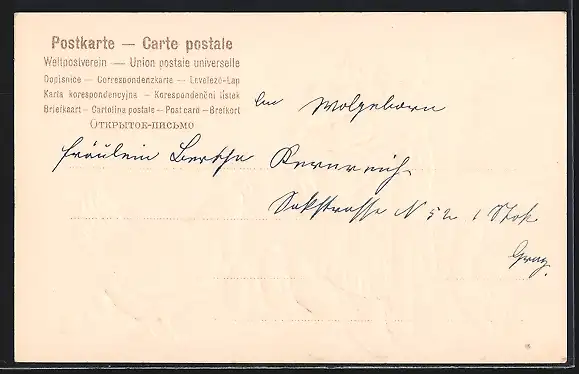 Postkarte — Carte postale
Weltpostverein — Union postale universelle
Dopisnice — Correspondenzkarte — Levelező-Lap
Karta korespondencyjna — Korespondenčni listek
Briefkaart — Cartolina postale — Post card — Brefkort
ОТКРЫТОЕ-ПИСЬМО
An Wolgeborn
Fräulein Bertha Kernreich
Sakstrasse N 52 1 Stok
Graz.